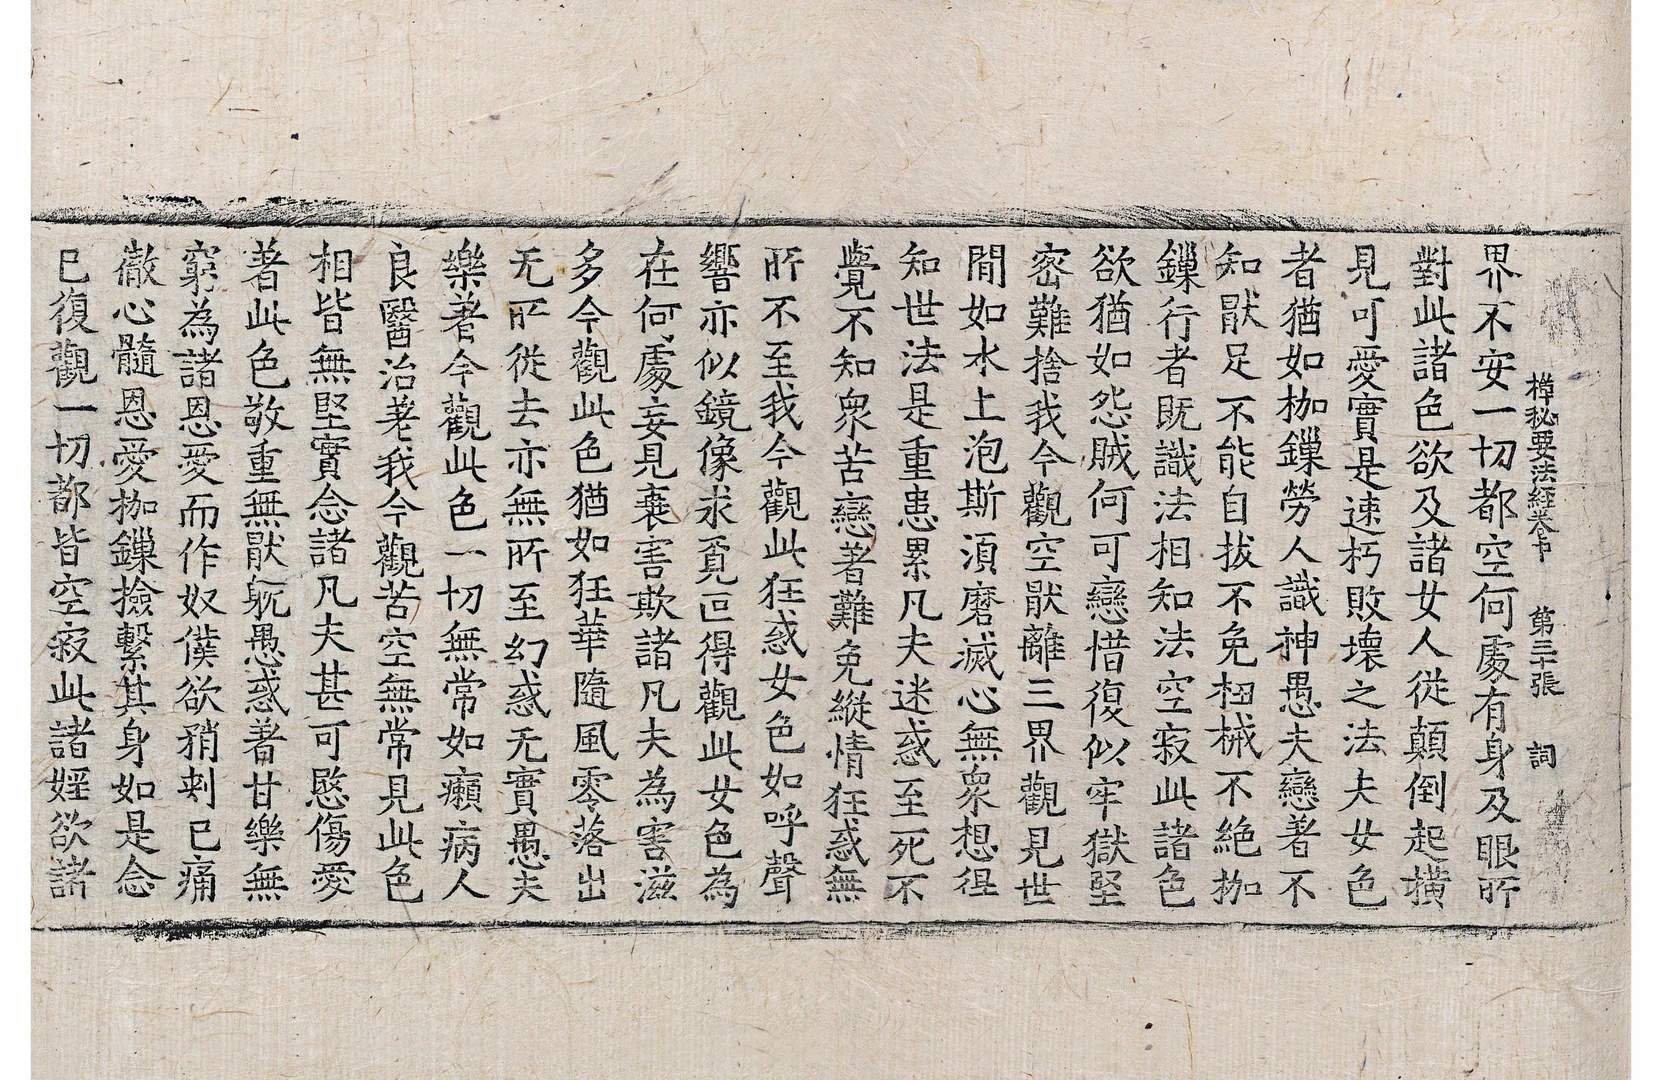 禪秘要法經卷中 第三十張 詞
界不安一切都空何處有身及眼所
對此諸色欲及諸女人從顛倒起橫
見可愛實是速朽敗壞之法夫女色
者猶如枷鏁勞人識神愚夫戀著不
知猒足不能自拔不免杻械不絶枷
鏁行者既識法相知法空寂此諸色
欲猶如怨賊何可戀惜復似牢獄堅
密難捨我今觀空猒離三界觀見世
間如水上泡斯須磨滅心無衆想徥
知世法是重患累凡夫迷惑至死不
覺不知衆苦戀著難免縱情狂惑無
所不至我今觀此狂惑女色如呼聲
響亦似鏡像求覓叵得觀此女色為
在何處妄見衰害欺諸凡夫為害滋
多今觀此色猶如狂華隨風零落出
无所從去亦無所至幻惑无實愚夫
樂著今觀此色一切無常如癩病人
良醫治差我今觀苦空無常見此色
相皆無堅實念諸凡夫甚可愍傷愛
著此色敬重無猒躭愚惑著甘樂無
窮為諸恩愛而作奴僕欲矟刺已痛
徹心髓恩愛枷鏁撿繫其身如是念
已復觀一切都皆空寂此諸婬欲諸